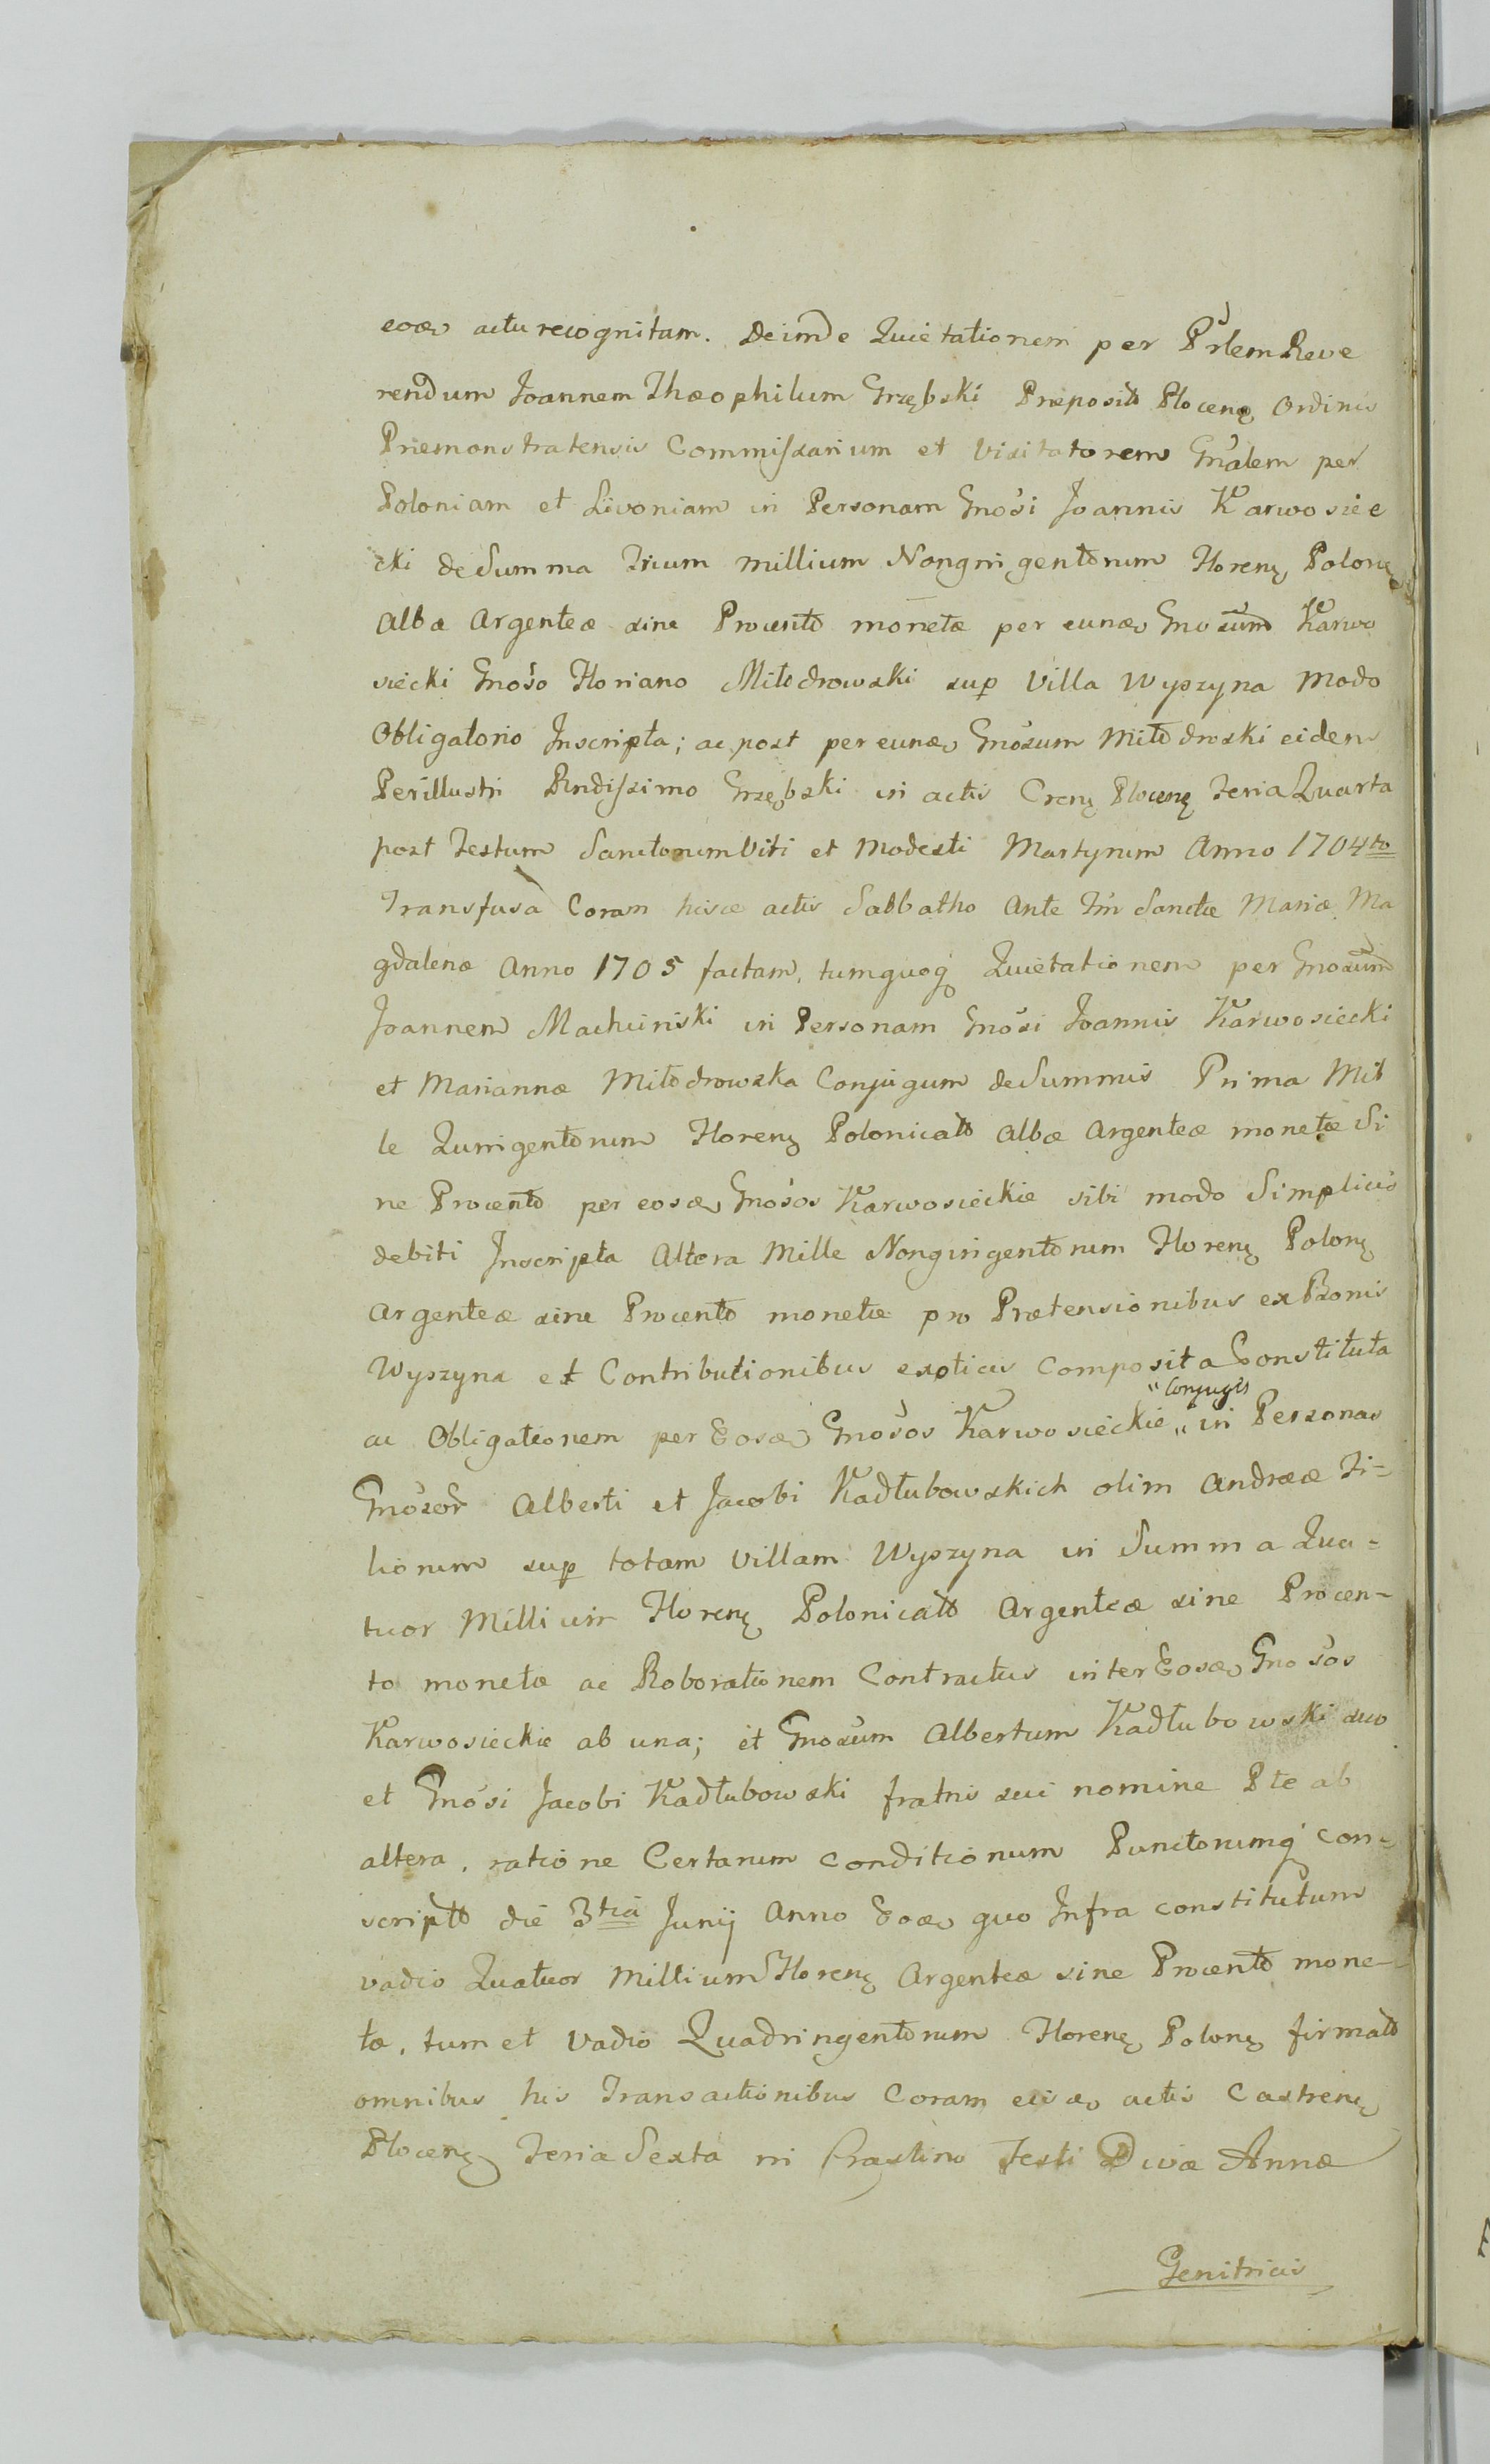 eođ actu recognitam. Deinde Quietationem per Prlem Reve
rendum Joannem Theophilum Grzębski Præposit Plocenę Ordinis
Præmonstratensis Commissarium et Visitatorem Gnalem per
Poloniam et Livoniam in Personam Gnosi Joannis Karwosie
cki de Summa Trium millium Nongingentorum Florenę Polonę
Albæ Argenteæ sine Procento monetæ per eund Gnosum Karwo
siecki Gnoso Floriano Miłodrowski sup Villa Wyszyna modo
Obligatorio Inscripta; ac post per eund Gnosum Miłodroski eidem
Perillustri Rndissimo Grzębski in actis Crenę Plocenę Feria Quarta
post Festum Sanctorum Viti et Modesti Martyrum Anno 1704to
Transfusa Coram hisce actis Sabbatho Ante Fm Sanctæ Mariæ Ma
gdalenæ Anno 1705 factam, tumquoq Quietationem per Gnosum
Joannem Machcinski in Personam Gnosi Joannis Karwosiecki
et Mariannæ Miłodrowska Conjugum de Summis Prima Mil
le Quingentorum Florenę Polonicalō Albæ Argenteæ monetæ Si
ne Procento per eosđ Gnosos Karwosieckie sibi modo Simplicis
debiti Inscripta Altera Mille Nongingentorum Florenę Polonę
Argenteæ sine Procento monetæ pro Prætensionibus ex Bonis
Wyszyna et Contributionibus exoticis Composita Constituta
ac Obligationem per Eosđ Gnosos Karwosieckie " Conjuges " in Personas
Gnosor Alberti et Jacobi Kadłubowskich olim Andreæ Fi=
liorum sup totam Villam Wyszyna in Summa Qua=
tuor Millium Florenę Polonicalō Argenteæ sine Procen-
to monetæ ac Roborationem Contractus inter Eosđ Gnosos
Karwosieckie ab una; et Gnosum Albertum Kadłubowski suo
et Gnosi Jacobi Kadłubowski fratris sui nomine Pte ab
altera, ratione Certarum conditionum Punctorumq con-
scripto die 3tia Junij Anno Eođ quo Infra constitutum
vadio Quatuor Millium Florenę Argenteæ sine Procento mone-
tæ, tum et Vadio Quadringentorum Florenę Polonę firmato
omnibus his Transactionibus Coram eisđ actis Castrenę
Plocenę Feria Sexta in Crastino Festi Divæ Annæ
Genitricis